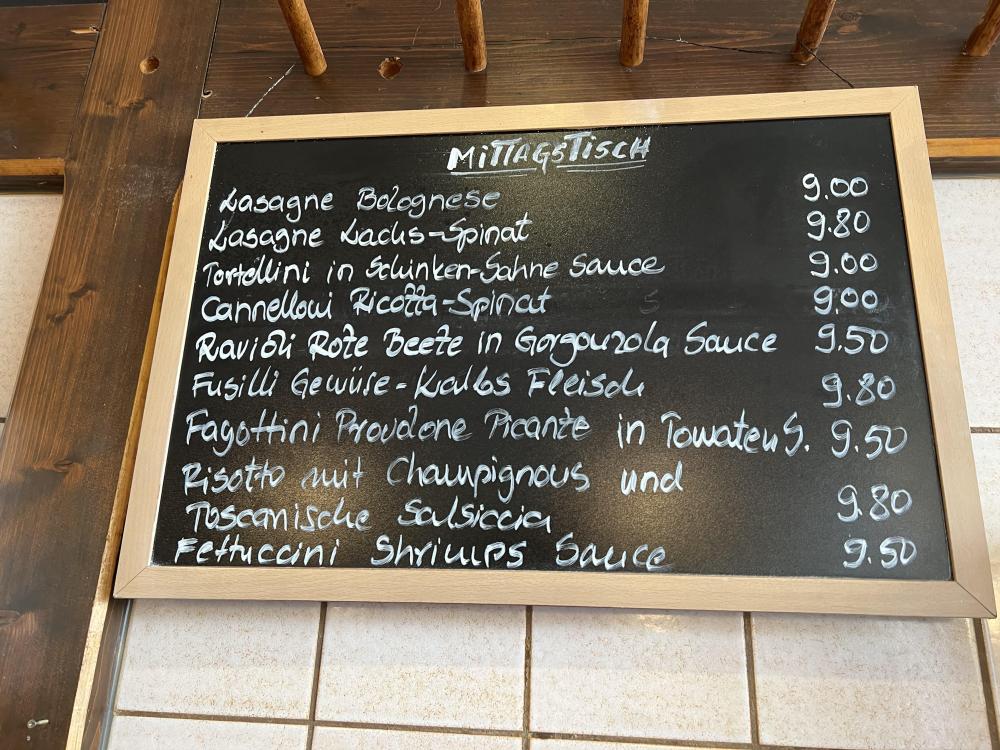 MITTAGSTISCH
Lasagne Bolognese 9.00
Lasagne Lachs-Spinat 9.80
Tortellini in Schinken-Sahne Sauce 9.00
Cannelloni Ricotta-Spinat 9.00
Ravioli Rote Beete in Gorgonzola Sauce 9.50
Fusilli Gemüse-Kalbs Fleisch 9.80
Fagottini Provolone Picante in Tomaten S. 9.50
Risotto mit Champignons und
Toscanische Salsiccia 9.80
Fettuccini Shrimps Sauce 9.50